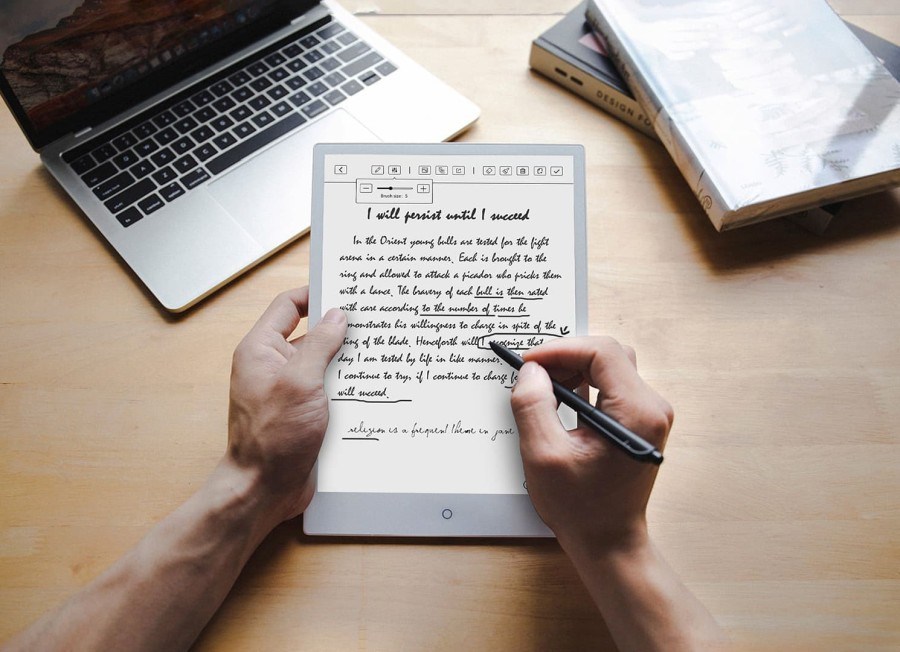 DESIGN FO
Brush size: 3
I will persist until I succeed
In the Orient young bulls are tested for the fight
arena in a certain manner. Each is brought to the
ring and allowed to attack a picador who pricks them
with a lance. The bravery of each bull is then rated
with care according to the number of times he
monstrates his willingness to charge in spite of the
ting of the blade. Henceforth will I recognize that
day I am tested by life in like manner.
I continue to try, if I continue to charge
will succeed.
religion is a frequent theme in jane